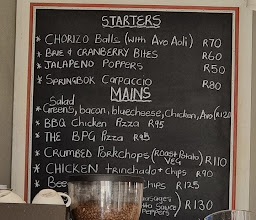 STARTERS
* CHORIZO Balls (with Avo Aoli) R70
* BRIE & CRANBERRY BITES R60
* JALAPENO POPPERS R50
* SPRINGBOK CARPACCIO R80
MAINS
Salad
* Greens, bacon, bluecheese, Chicken, Avo (R120
* BBQ Chicken Pizza R95
* THE BPG Pizza R95
* CRUMBED Porkchops (Roast Potato R110
VEG
* CHICKEN trinchado + Chips R90
* Bee Chips R125
Sausages
Sauce R130
Peppers)